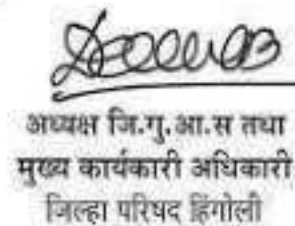 अध्यक्ष जि.गु.आ.स तथा
मुख्य कार्यकारी अधिकारी
जिल्हा परिषद हिंगोली